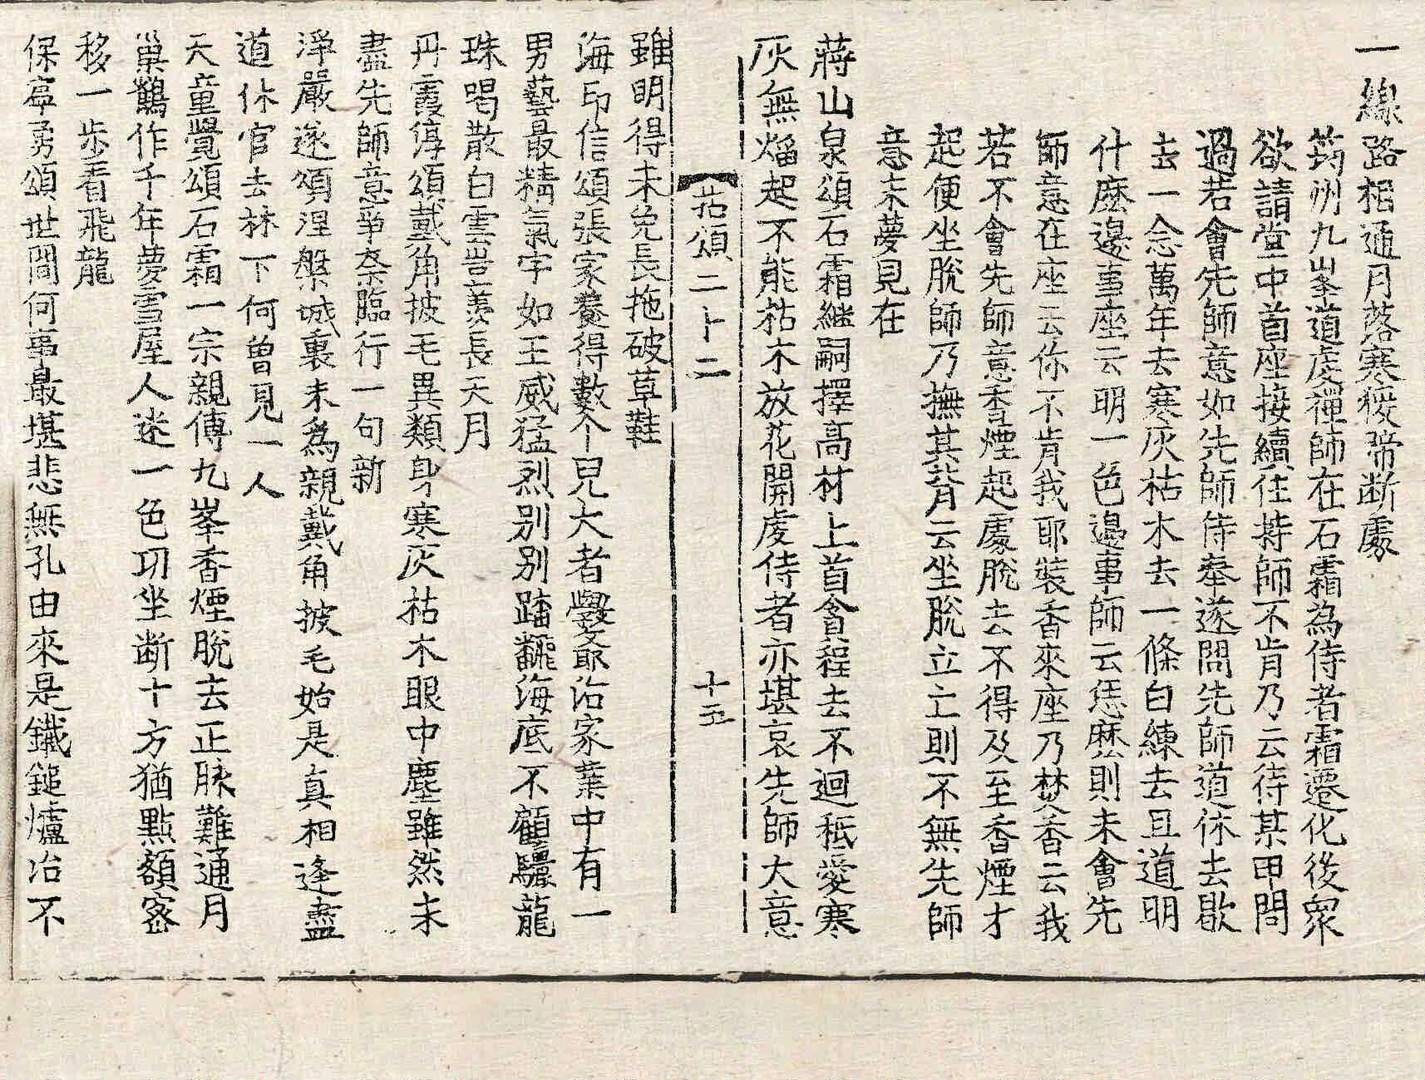 一線路相通月落寒猨啼断處
筠州九峯道虔禪師在石霜為侍者霜遷化後衆
欲請堂中首座接續住持師不肯乃云待某甲問
過若會先師意如先師侍奉遂問先師道休去歇
去一念萬年去寒灰枯木去一條白練去且道明
什麽邊事座云明一色邊事師云恁麽則未會先
師意在座云你不肯我耶裝香來座乃焚香云我
若不會先師意香煙起處脫去不得及至香煙才
起便坐脫師乃撫其背云坐脫立亡則不無先師
意未夢見在
蔣山泉頌石霜継嗣擇高材上首貪程去不迴秖愛寒
灰無熖起不能枯木放花開虔侍者亦堪哀先師大意
拈頌二十二 十五
雖明得未免長拖破草鞋
海印信頌張家養得數个兒大者學爺治家葉中有一
男藝最精氣宇如王威猛烈別別踍飜海底不顧驪龍
珠喝散白雲豈羨長天月
丹霞淳頌戴角披毛異類身寒灰枯木眼中塵雖然未
盡先師意爭奈臨行一句新
淨嚴遂頌涅槃城裏未為親戴角披毛始是真相逢盡
道休官去林下何曾見一人
天童覺頌石霜一宗親傳九峯香煙脫去正脉難通月
巢鶴作千年夢雪屋人迷一色功坐断十方猶點額密
移一步看飛龍
保寧勇頌世間何事最堪悲無孔由來是鐵鎚爐冶不